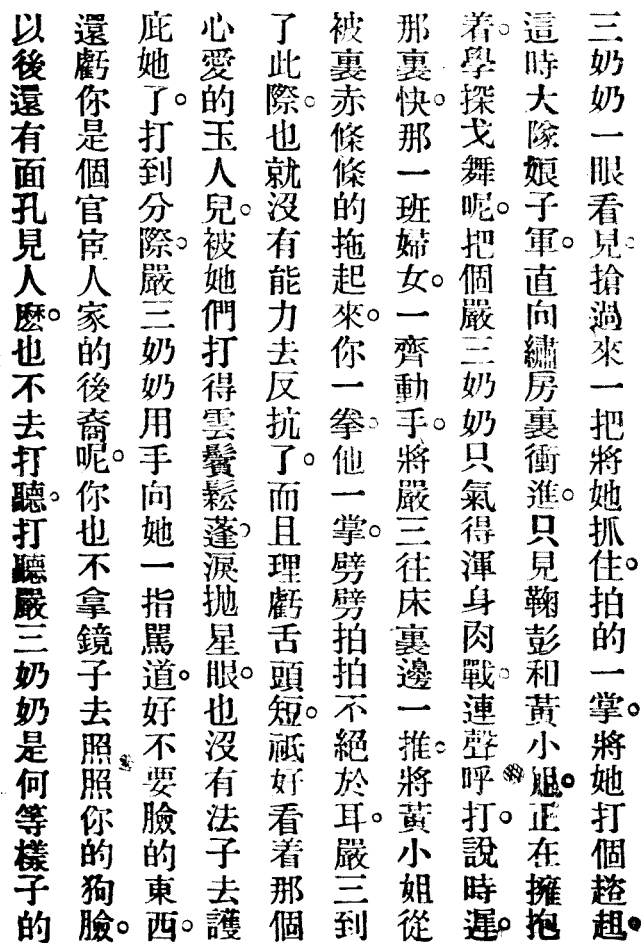 三奶奶一眼看見。搶過來一把將她抓住。拍的一掌。將她打個趦趄。
這時大隊娘子軍。直向繡房裏衝進。只見鞠彭和黃小姐。正在擁抱
着。學探戈舞呢。把個嚴三奶奶只氣得渾身肉戰。連聲呼打。說時遲。
那裏快。那一班婦女。一齊動手。將嚴三往床裏邊一推。將黃小姐從
被裏赤條條的拖起來。你一拳。他一掌。劈劈拍拍不絕於耳。嚴三到
了此際。也就沒有能力去反抗了。而且理虧舌頭短。祗好看着那個
心愛的玉人兒。被她們打得雲鬢鬆蓬。淚拋星眼。也沒有法子去護
庇她了。打到分際。嚴三奶奶用手向她一指罵道。好不要臉的東西。
還虧你是個官宦人家的後裔呢。你也不拿鏡子去照照你的狗臉。
以後還有面孔見人麽。也不去打聽。打聽嚴三奶奶是何等樣子的